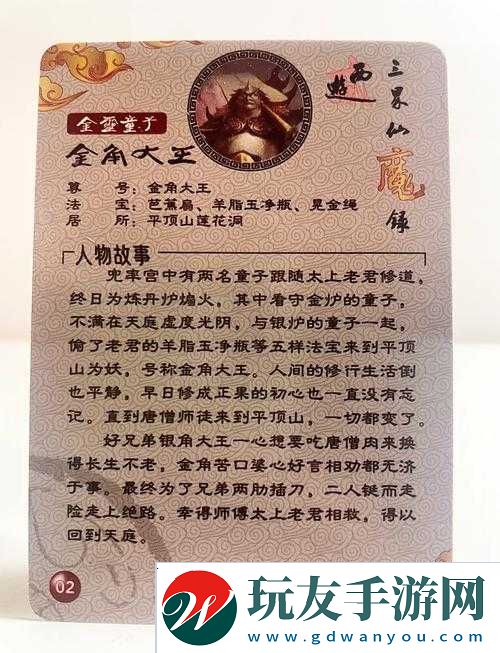 西遊
三界仙魔錄
金靈童子
金角大王
尊　号：金角大王
法　宝：芭蕉扇、羊脂玉净瓶、晃金绳
居　所：平顶山莲花洞
人物故事
兜率宫中有两名童子跟随太上老君修道，
终日为炼丹炉煽火，其中看守金炉的童子，
不满在天庭虚度光阴，与银炉的童子一起，
偷了老君的羊脂玉净瓶等五样法宝来到平顶
山为妖，号称金角大王。人间的修行生活倒
也平静，早日修成正果的初心也一直没有忘
记。直到唐僧师徒来到平顶山，一切都变了。
好兄弟银角大王一心想要吃唐僧肉来换
得长生不老，金角苦口婆心好言相劝都无济
于事。最终为了兄弟两肋插刀，二人铤而走
险走上绝路。幸得师傅太上老君相救，得以
回到天庭。
02
玩友手游网
www.gdwanyou.com